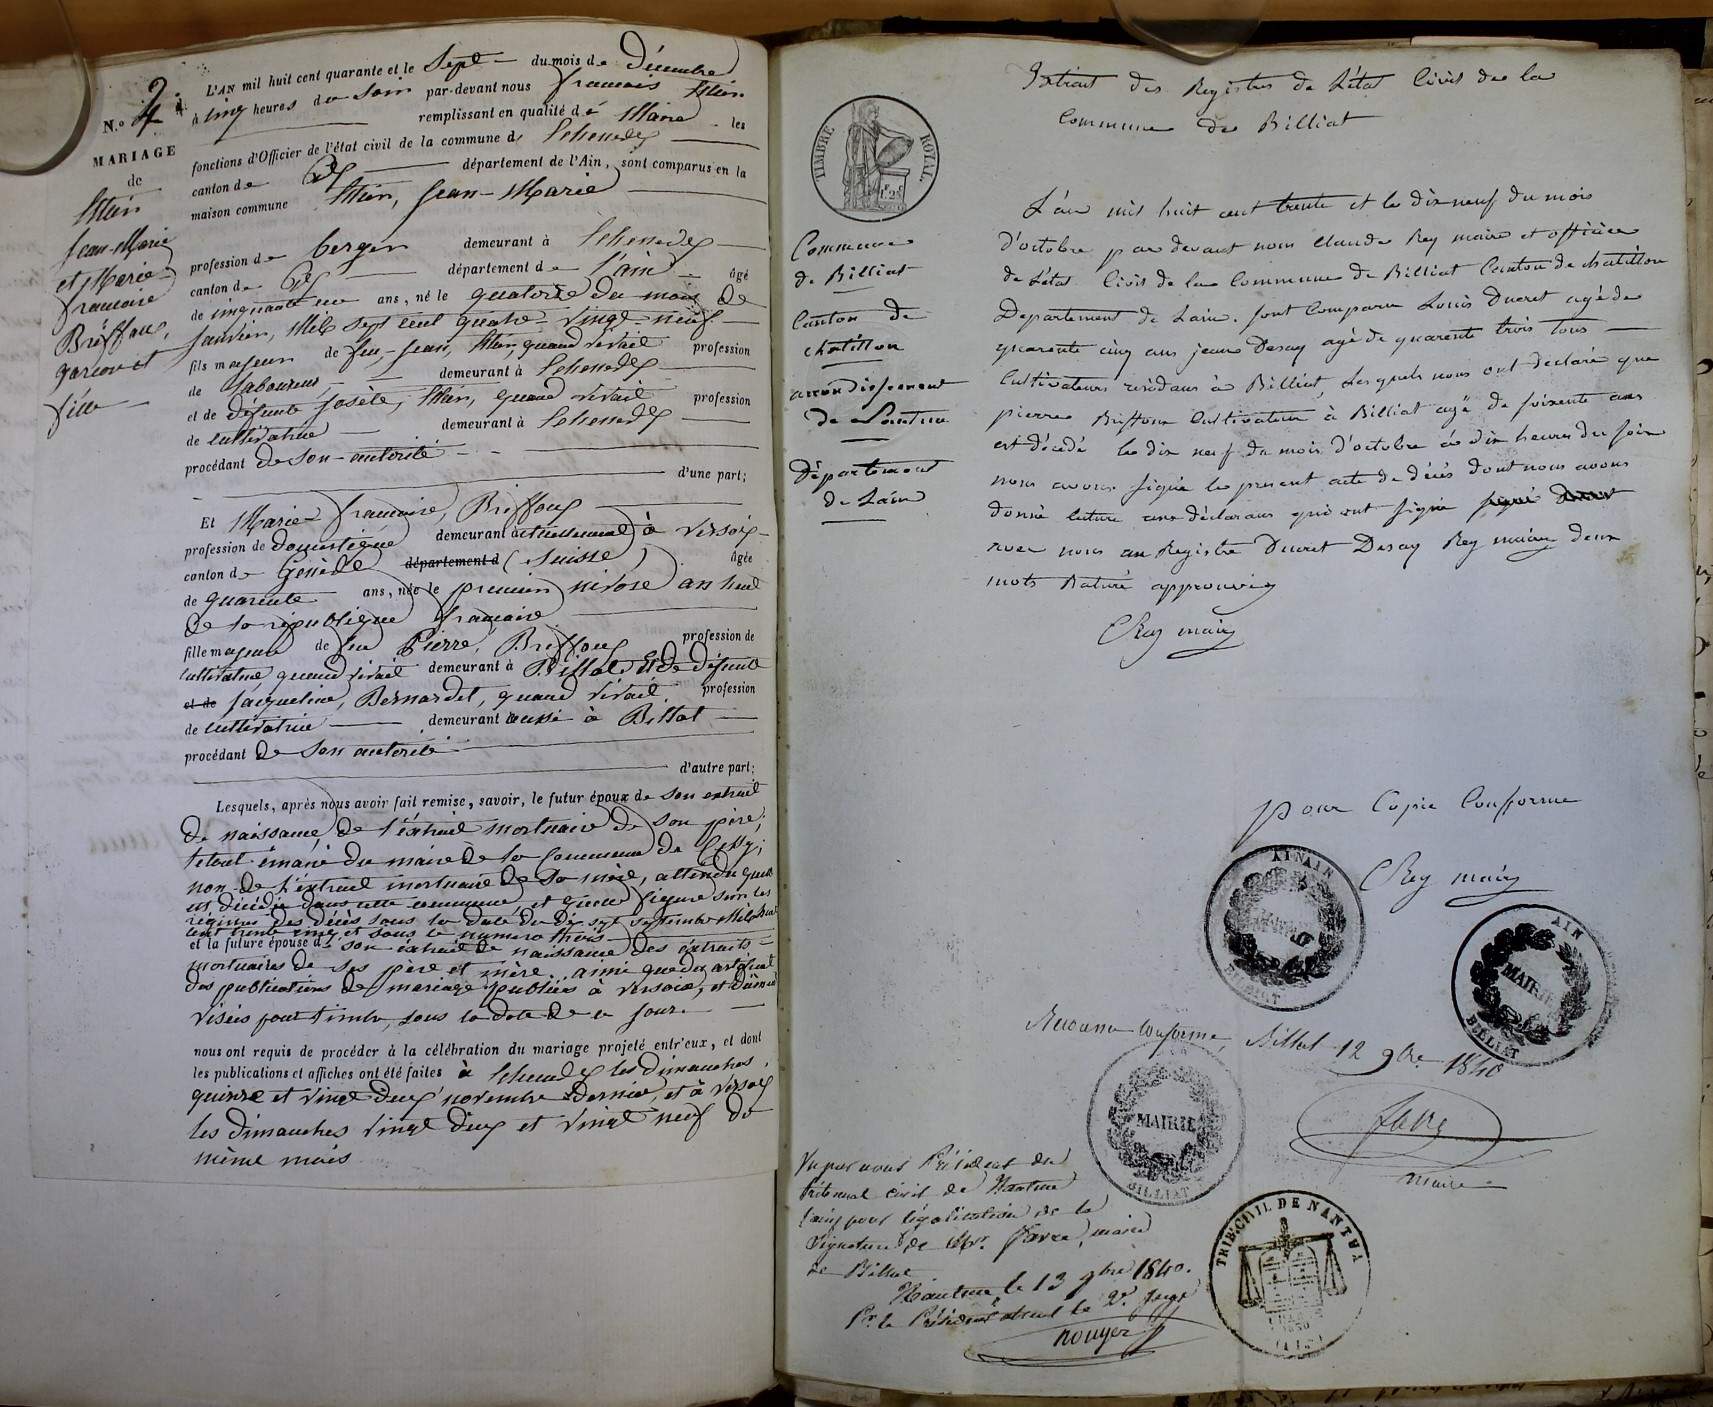 N.o 4
MARIAGE
de
Jean-Marie
et Marie
francoise
Briffoux,
garcon et
fille
L'AN mil huit cent quarante et le Sept du mois de décembre
à cinq heures du soir par-devant nous francois
remplissant en qualité de Maire les
fonctions d'Officier de l'état civil de la commune d
canton de département de l'Ain, sont comparus en la
maison commune Jean-Marie
profession de berger demeurant à
canton de département de l'ain âgé
de cinquante un ans, né le quatorze du mois de
janvier, Mil sept cent quatre-vingt-neuf
fils majeur de feu Jean, quand vivait profession
de laboureur demeurant à
et de défunte Josète, quand vivait profession
de cultivatrice demeurant à
procédant de son autorité
d'une part;
Et Marie francoise, Briffoux
profession de domestique demeurant actuellement à Versoix
canton de Genève département d (Suisse) âgée
de quarante ans, née le premier nivose an huit
de la république francaise
fille majeure de feu Pierre, Briffoux profession de
cultivateur quand vivait demeurant à Billat, et de défunte
et de Jacqueline, Bernardet, quand vivait profession
de cultivatrice demeurant aussi à Billat
procédant de son autorité
d'autre part;
Lesquels, après nous avoir fait remise, savoir, le futur époux de son extrait
de naissance, de l'extrait mortuaire de son père,
le tout émané du maire de la Commune de Cessy;
non de l'extrait mortuaire de sa mère, attendu quelle
est décédée dans cette commune, et quelle figure sur les
registres des décès sous la date du dix sept septembre Mil huit
cent trente cinq et sous le numero trois
et la future épouse de son extrait de naissance des extraits
mortuaires de ses père et mère, ainsi que du certificat
des publications de mariage publiées à Versoix, et dûement
visées pour timbre, sous la date de ce jour.
nous ont requis de procéder à la célébration du mariage projeté entr'eux, et dont
les publications et affiches ont été faites à les dimanches
quinze et vingt deux novembre dernier, et à Versoix
les dimanches vingt deux et vingt neuf du
même mois
TIMBRE ROYAL
1F.25C
Commune
de Billiat
Canton de
châtillon
arrondissement
de Nantua
Département
de Lain
Extrait des Registres de Létat Civil de la
Commune de Billiat
L'an mil huit cent trente et le dix neuf du mois
d'octobre par devant nous Claude Rey maire et officier
de Létat Civil de la Commune de Billiat Canton de chatillon
Departement de Lain. sont Comparu Louis Ducret agé de
quarente cinq ans jean Desay agé de quarente trois tous
Cultivateurs residans à Billiat, Lesquels nous ont declaré que
pierre Briffoux Cultivateur à Billiat agé de soixente ans
est décédé le dix neuf du mois d'octobre à dix heures du soir
nous avons signé le present acte de décés dont nous avons
donné lecture aux déclarans qui ont signé
avec nous au Registre Ducret Desay Rey maire deux
mots Raturé approuvés
CRey maire
pour Copie Conforme
CRey maire
AIN
MAIRIE
BILLIAT
AIN
MAIRIE
BILLIAT
Reconnu conforme, Billiat 12 9bre 1840
Favre
maire
MAIRIE
BILLIAT
Vu par nous Président du
tribunal civil de Nantua
(ain) pour légalisation de la
signature de Mr. Favre, maire
de Billiat
Nantua le 13 9bre 1840.
Pr. le Président absent le 2e. Juge
Rouyer
TRIB. CIVIL DE NANTUA
1830
(AIN)